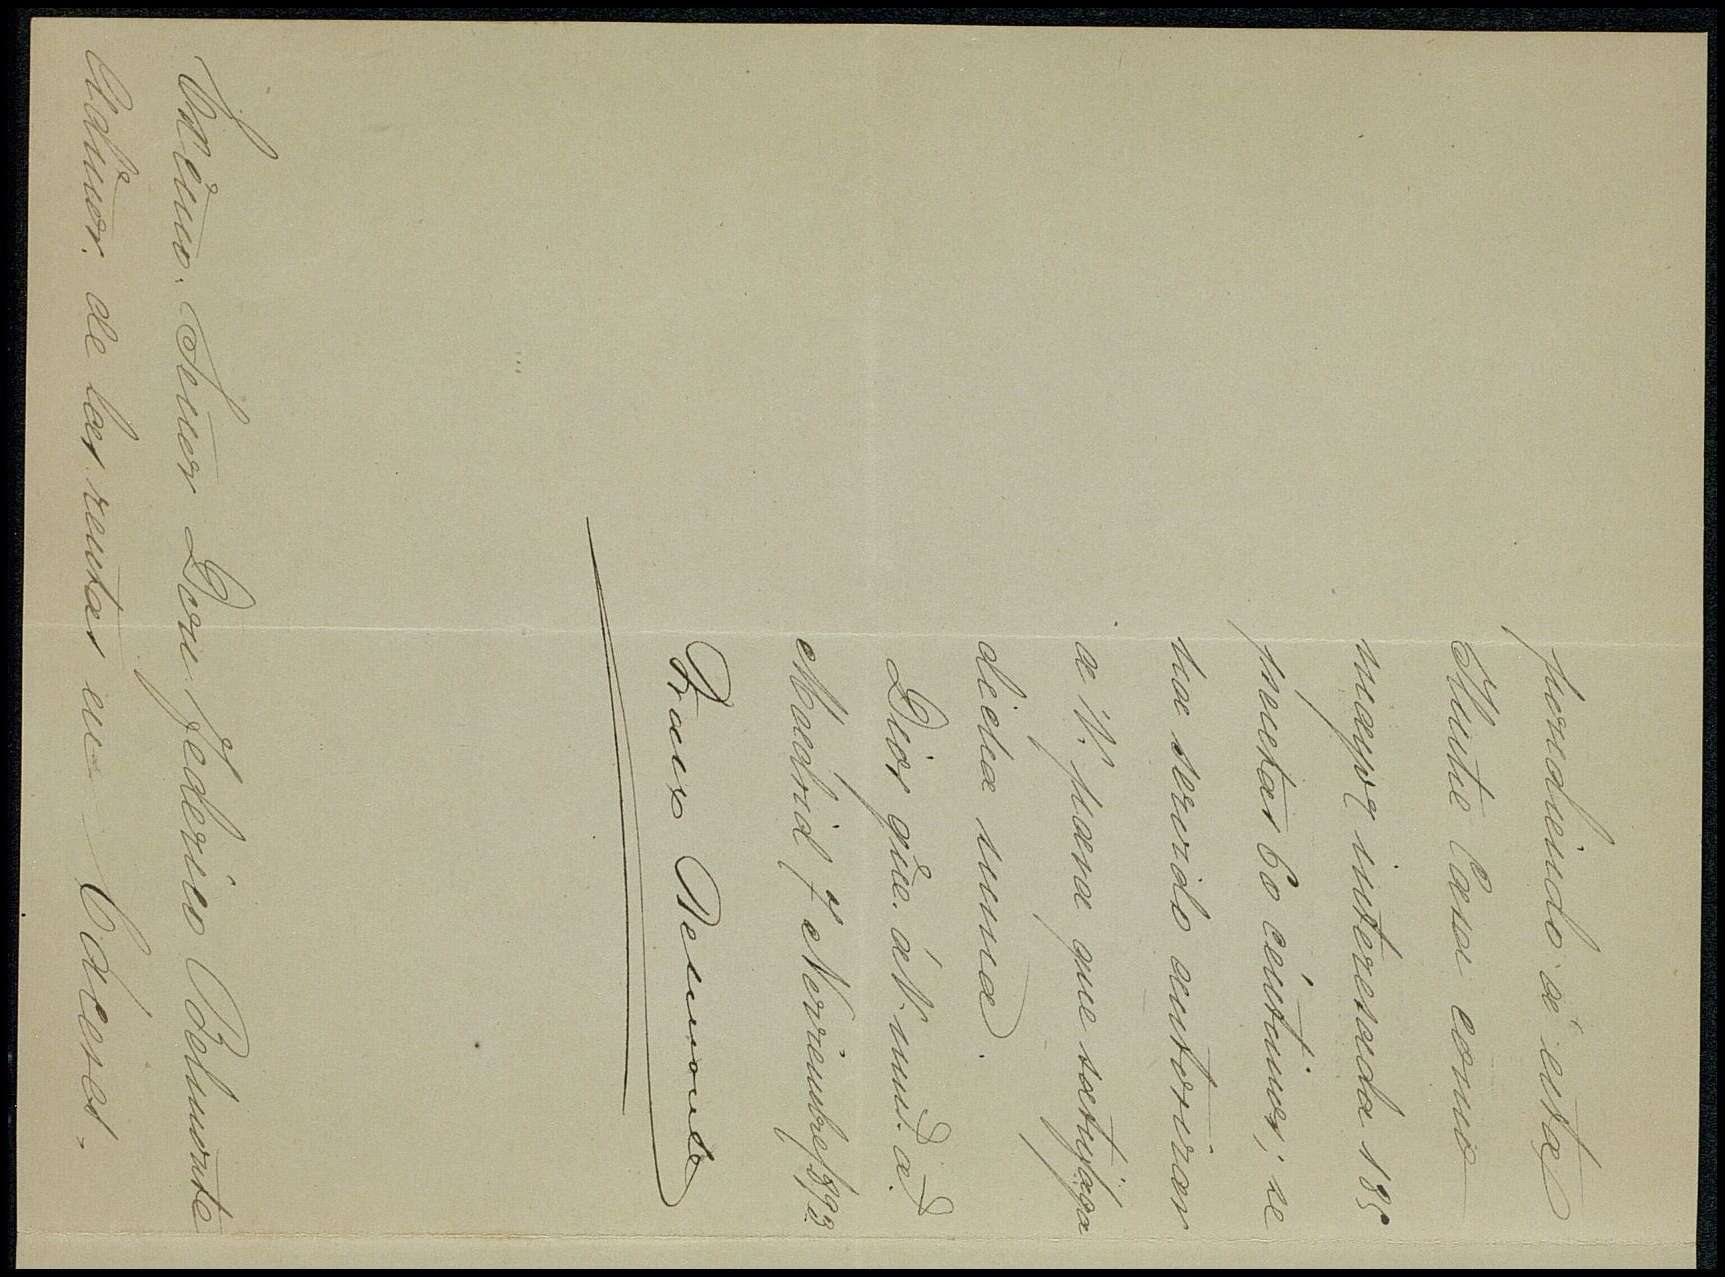 pondiendo á esta
Ilustre Casa como
mayor interesada 185
pesetas 60 céntimos; se
ha servido autorizar
a V. para que satisfaga
dicha suma.
Dios gue. á V. mu.s a.s
Madrid 7 Noviembre/893.
Franco Belmonte
Excmo. Señor Don Federico Belmonte
Admor. de las rentas en Cáceres.